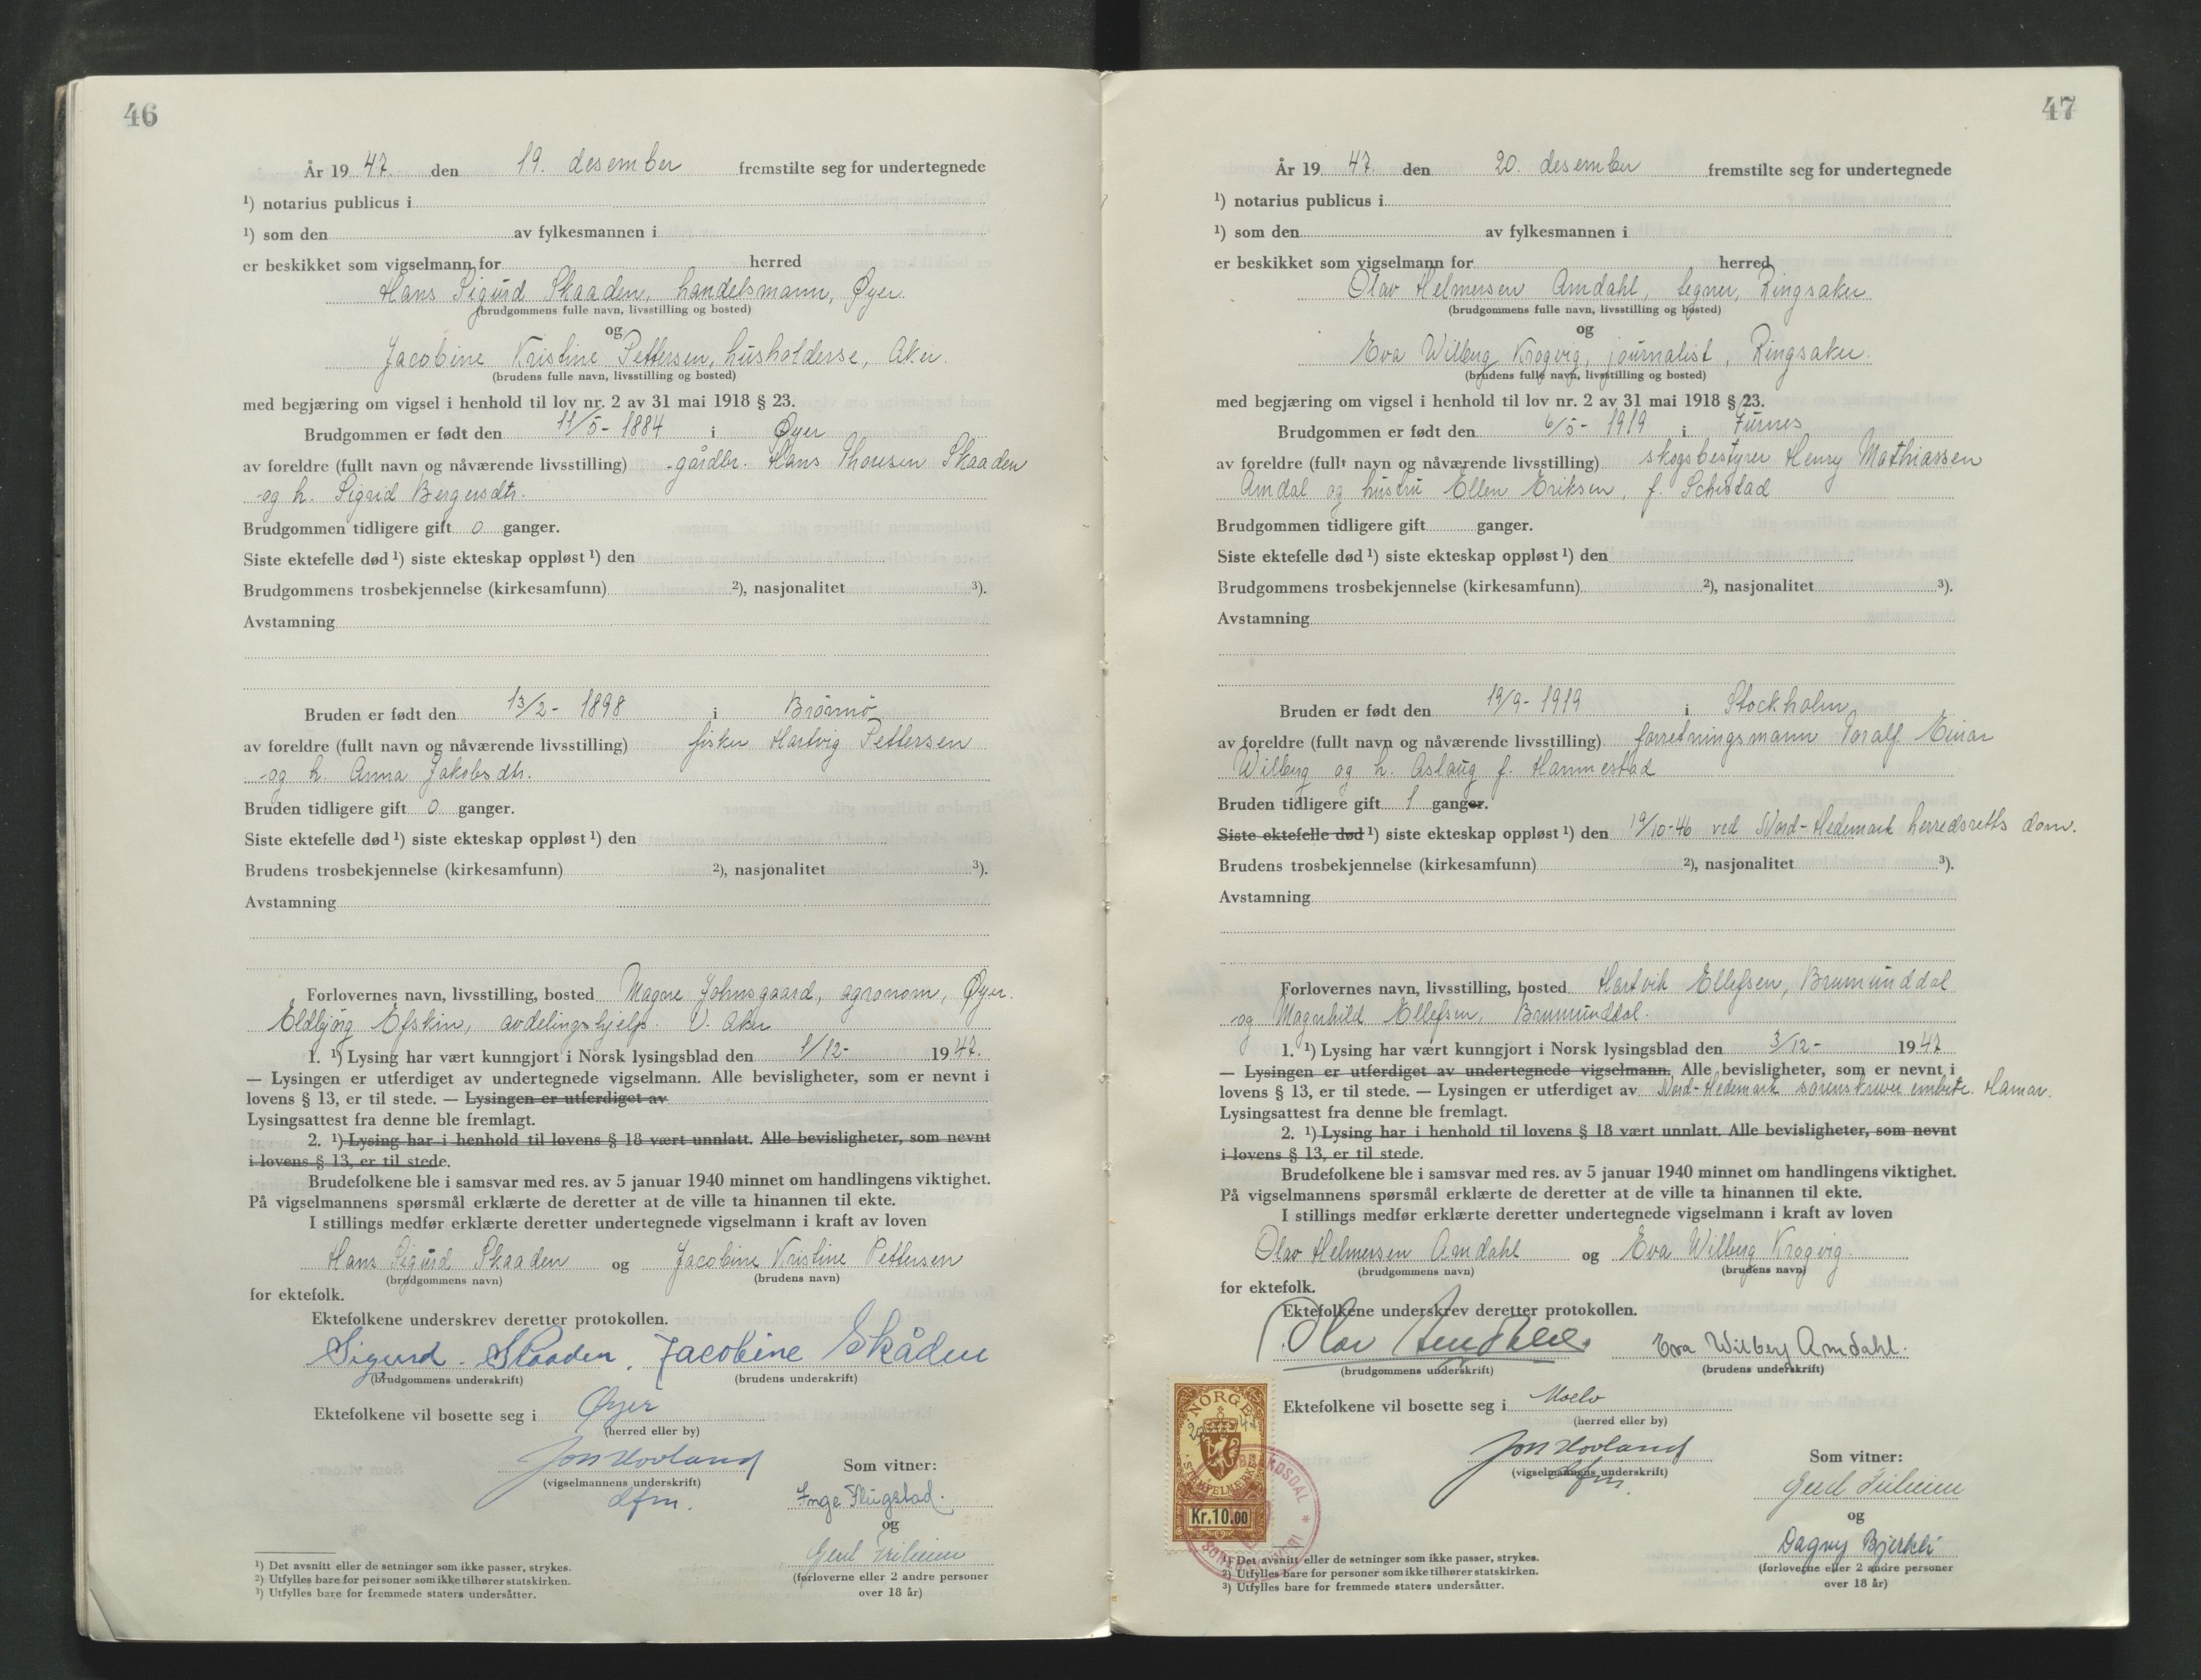 46
År 19 47. den 19. desember fremstilte seg for undertegnede
¹) notarius publicus i
¹) som den av fylkesmannen i
er beskikket som vigselmann for herred
Hans Sigurd Skaaden, handelsmann, Øyer.
(brudgommens fulle navn, livsstilling og bosted)
og
Jacobine Kristine Pettersen, husholderse, Aker.
(brudens fulle navn, livsstilling og bosted)
med begjæring om vigsel i henhold til lov nr. 2 av 31 mai 1918 § 23.
Brudgommen er født den 11/5- 1884 i Øyer
av foreldre (fullt navn og nåværende livsstilling) -gårdbr. Hans Thoresen Skaaden
-og h. Sigrid Bergersdtr.
Brudgommen tidligere gift 0 ganger.
Siste ektefelle død ¹) siste ekteskap oppløst ¹) den
Brudgommens trosbekjennelse (kirkesamfunn) ²), nasjonalitet ³).
Avstamning
Bruden er født den 13/2- 1898 i Brönnö
av foreldre (fullt navn og nåværende livsstilling) fisker Hartvig Pettersen
-og h. Anna Jakobsdtr.
Bruden tidligere gift 0 ganger.
Siste ektefelle død ¹) siste ekteskap oppløst ¹) den
Brudens trosbekjennelse (kirkesamfunn) ²), nasjonalitet ³).
Avstamning
Forlovernes navn, livsstilling, bosted Magne Johnsgaard, agronom, Øyer.
Eldbjörg Efskin, avdelingshjelp. V. Aker
1. ¹) Lysing har vært kunngjort i Norsk lysingsblad den 1/12- 19 47.
— Lysingen er utferdiget av undertegnede vigselmann. Alle bevisligheter, som er nevnt i
lovens § 13, er til stede. — Lysingen er utferdiget av
Lysingsattest fra denne ble fremlagt.
2. ¹) Lysing har i henhold til lovens § 18 vært unnlatt. Alle bevisligheter, som nevnt
i lovens § 13, er til stede.
Brudefolkene ble i samsvar med res. av 5 januar 1940 minnet om handlingens viktighet.
På vigselmannens spørsmål erklærte de deretter at de ville ta hinannen til ekte.
I stillings medfør erklærte deretter undertegnede vigselmann i kraft av loven
Hans Sigurd Skaaden og Jacobine Kristine Pettersen
(brudgommens navn) (brudens navn)
for ektefolk.
Ektefolkene underskrev deretter protokollen.
Sigurd Skaaden. Jacobine Skåden
(brudgommens underskrift) (brudens underskrift)
Ektefolkene vil bosette seg i Øyer
(herred eller by)
Jon Hovland
(vigselmannens underskrift) Som vitner:
dfm. Inge Flugstad.
og
Gerd
(forloverne eller 2 andre personer
over 18 år)
¹) Det avsnitt eller de setninger som ikke passer, strykes.
²) Utfylles bare for personer som ikke tilhører statskirken.
³) Utfylles bare for fremmede staters undersåtter.
47
År 19 47. den 20. desember fremstilte seg for undertegnede
¹) notarius publicus i
¹) som den av fylkesmannen i
er beskikket som vigselmann for herred
Olav Helmersen Amdahl, tegner, Ringsaker
(brudgommens fulle navn, livsstilling og bosted)
og
Eva Wilberg Krogvig, journalist, Ringsaker.
(brudens fulle navn, livsstilling og bosted)
med begjæring om vigsel i henhold til lov nr. 2 av 31 mai 1918 § 23.
Brudgommen er født den 6/5- 1919 i Furnes
av foreldre (fullt navn og nåværende livsstilling) skogsbestyrer Henry Mathiassen
Amdal og hustru Ellen Eriksen, f. Schistad
Brudgommen tidligere gift ganger.
Siste ektefelle død ¹) siste ekteskap oppløst ¹) den
Brudgommens trosbekjennelse (kirkesamfunn) ²), nasjonalitet ³).
Avstamning
Bruden er født den 19/9- 1919 i Stockholm
av foreldre (fullt navn og nåværende livsstilling) forretningsmann Toralf Einar
Wilberg og h. Aslaug f. Hannestad
Bruden tidligere gift 1 ganger.
Siste ektefelle død ¹) siste ekteskap oppløst ¹) den 19/10-46 ved Nord-Hedemark herredsretts dom.
Brudens trosbekjennelse (kirkesamfunn) ²), nasjonalitet ³).
Avstamning
Forlovernes navn, livsstilling, bosted Hartvik Ellefsen, Brumunddal
-og Magnhild Ellefsen, Brumunddal.
1. ¹) Lysing har vært kunngjort i Norsk lysingsblad den 3/12- 19 47
— Lysingen er utferdiget av undertegnede vigselmann. Alle bevisligheter, som er nevnt i
lovens § 13, er til stede. — Lysingen er utferdiget av Nord-Hedemark sorenskriverembete. Hamar.
Lysingsattest fra denne ble fremlagt.
2. ¹) Lysing har i henhold til lovens § 18 vært unnlatt. Alle bevisligheter, som nevnt
i lovens § 13, er til stede.
Brudefolkene ble i samsvar med res. av 5 januar 1940 minnet om handlingens viktighet.
På vigselmannens spørsmål erklærte de deretter at de ville ta hinannen til ekte.
I stillings medfør erklærte deretter undertegnede vigselmann i kraft av loven
Olav Helmersen Amdahl og Eva Wilberg Krogvig.
(brudgommens navn) (brudens navn)
for ektefolk.
Ektefolkene underskrev deretter protokollen.
Olav Amdahl. Eva Wilberg Amdahl.
(brudgommens underskrift) (brudens underskrift)
Ektefolkene vil bosette seg i Moelv
(herred eller by)
NORGE
STEMPELMERKE
Kr.10.00
Jon Hovland
(vigselmannens underskrift) Som vitner:
dfm.
Gerd
og
Dagny Bjerkli
(forloverne eller 2 andre personer
over 18 år)
¹) Det avsnitt eller de setninger som ikke passer, strykes.
²) Utfylles bare for personer som ikke tilhører statskirken.
³) Utfylles bare for fremmede staters undersåtter.